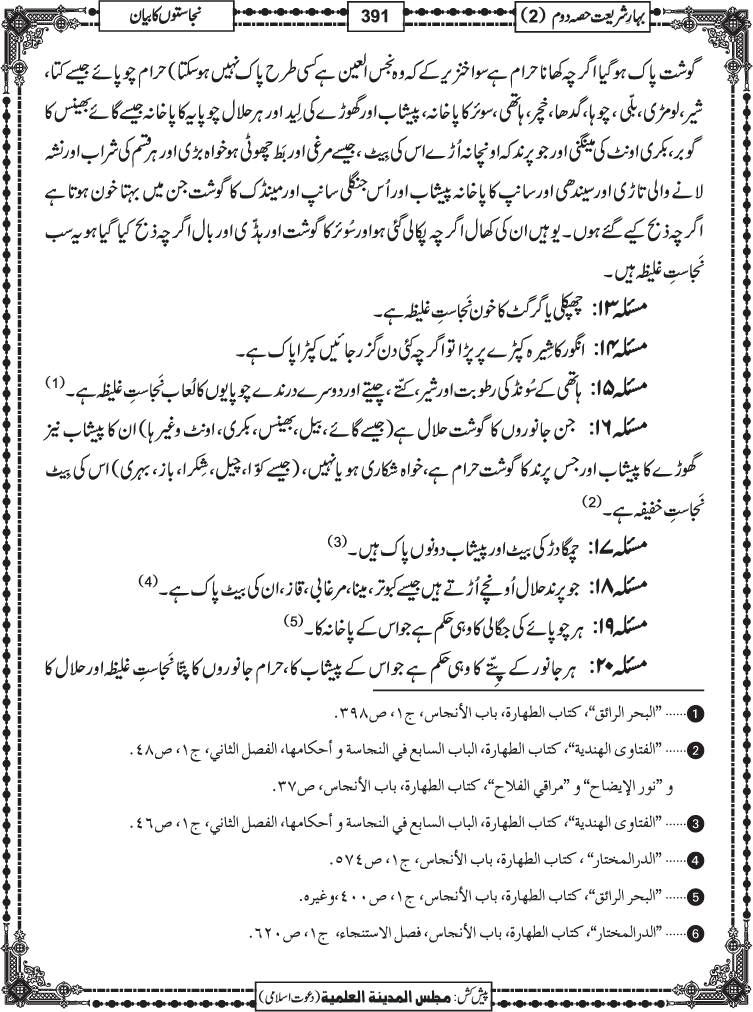 بہارِ شریعت حصہ دوم (2)
391
نجاستوں کا بیان
گوشت پاک ہوگیا اگرچہ کھانا حرام ہے سوا خنزیر کے کہ وہ نجس العین ہے کسی طرح پاک نہیں ہوسکتا) حرام چوپائے جیسے کتا،
شیر، لومڑی، بلّی، چوہا، گدھا، خچر، ہاتھی، سوئر کا پاخانہ، پیشاب اور گھوڑے کی لید اور ہر حلال چوپایہ کا پاخانہ جیسے گائے بھینس کا
گوبر، بکری اونٹ کی مینگنی اور جو پرند کہ اونچا نہ اُڑے اس کی بیٹ، جیسے مرغی اور بَط چھوٹی ہو خواہ بڑی اور ہر قسم کی شراب اور نشہ
لانے والی تاڑی اور سیندھی اور سانپ کا پاخانہ پیشاب اور اُس جنگلی سانپ اور مینڈک کا گوشت جن میں بہتا خون ہوتا ہے
اگرچہ ذبح کیے گئے ہوں۔ یوہیں ان کی کھال اگرچہ پکالی گئی ہو اور سُوئر کا گوشت اور ہڈّی اور بال اگرچہ ذبح کیا گیا ہو یہ سب
نَجاستِ غلیظہ ہیں۔
مسئلہ ۱۳: چھپکلی یا گرگٹ کا خون نَجاستِ غلیظہ ہے۔
مسئلہ ۱۴: انگور کا شِیرہ کپڑے پر پڑا تو اگرچہ کئی دن گزر جائیں کپڑا پاک ہے۔
مسئلہ ۱۵: ہاتھی کے سُونڈ کی رطوبت اور شیر، کتّے، چیتے اور دوسرے درندے چوپایوں کا لُعاب نَجاستِ غلیظہ ہے۔ (1)
مسئلہ ۱۶: جن جانوروں کا گوشت حلال ہے (جیسے گائے، بیل، بھینس، بکری، اونٹ وغیرہا) ان کا پیشاب نیز
گھوڑے کا پیشاب اور جس پرند کا گوشت حرام ہے، خواہ شکاری ہو یا نہیں، (جیسے کوّا، چیل، شِکرا، باز، بہری) اس کی بیٹ
نَجاستِ خفیفہ ہے۔ (2)
مسئلہ ۱۷: چمگادڑ کی بیٹ اور پیشاب دونوں پاک ہیں۔ (3)
مسئلہ ۱۸: جو پرند حلال اُونچے اُڑتے ہیں جیسے کبوتر، مینا، مرغابی، قاز، ان کی بیٹ پاک ہے۔ (4)
مسئلہ ۱۹: ہر چوپائے کی جگالی کا وہی حکم ہے جو اس کے پاخانہ کا۔ (5)
مسئلہ ۲۰: ہر جانور کے پِتّے کا وہی حکم ہے جو اس کے پیشاب کا، حرام جانوروں کا پِتّا نَجاستِ غلیظہ اور حلال کا
1 ...... ”البحر الرائق“، کتاب الطهارة، باب الأنجاس، ج۱، ص۳۹۸.
2 ...... ”الفتاوی الهندية“، کتاب الطهارة، الباب السابع في النجاسة و أحکامها، الفصل الثاني، ج۱، ص۴۸.
و ”نور الإیضاح“ و ”مراقي الفلاح“، کتاب الطهارة، باب الأنجاس، ص۳۷.
3 ...... ”الفتاوی الهندية“، کتاب الطهارة، الباب السابع في النجاسة و أحکامها، الفصل الثاني، ج۱، ص۴۶.
4 ...... ”الدرالمختار“، کتاب الطهارة، باب الأنجاس، ج۱، ص۵۷۴.
5 ...... ”البحر الرائق“، کتاب الطهارة، باب الأنجاس، ج۱، ص۴۰۰، وغیره.
6 ...... ”الدرالمختار“، کتاب الطهارة، باب الأنجاس، فصل الاستنجاء، ج۱، ص۶۲۰.
پیش کش: مجلس المدینة العلمیة (دعوتِ اسلامی)